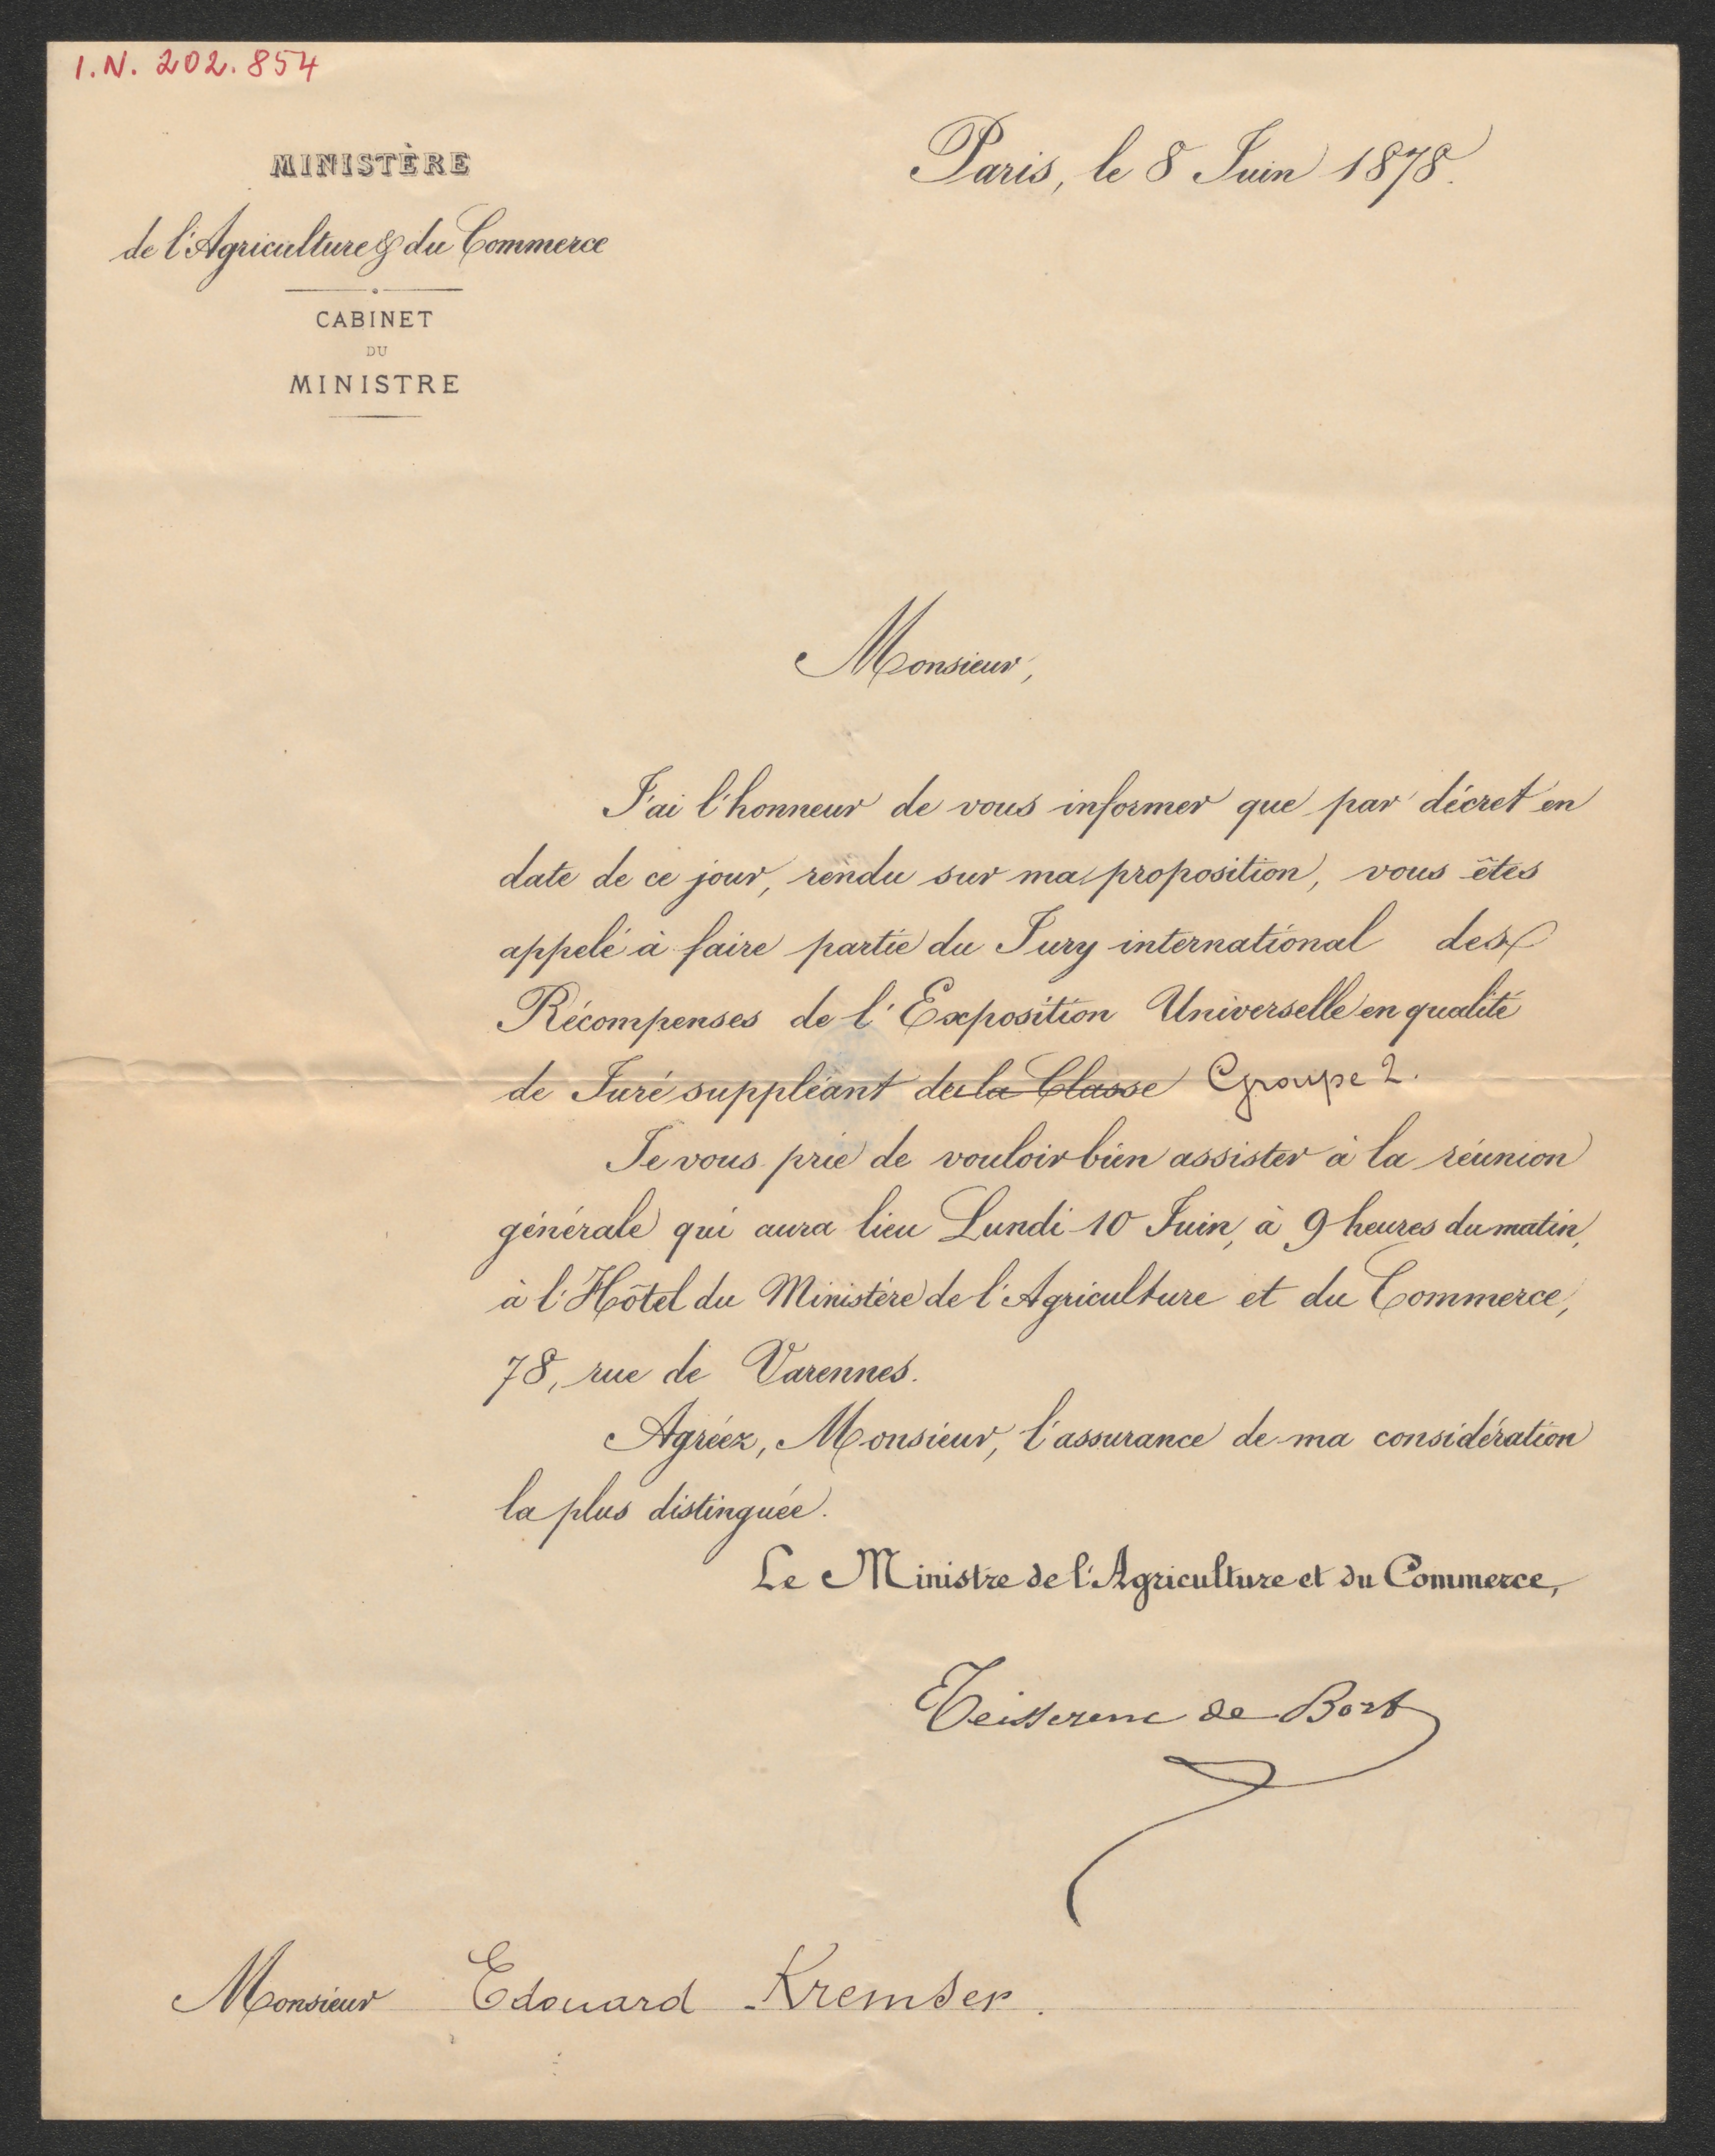 I.N. 202.854
MINISTÈRE
de l'Agriculture & du Commerce
CABINET
DU
MINISTRE
Paris, le 8 Juin 1878.
Monsieur,
J'ai l'honneur de vous informer que par décret en
date de ce jour, rendu sur ma proposition, vous êtes
appelé à faire partie du Jury international des
Récompenses de l'Exposition Universelle en qualité
de Juré suppléant de la Classe Groupe 2.
Je vous prie de vouloir bien assister à la réunion
générale qui aura lieu Lundi 10 Juin, à 9 heures du matin,
à l'Hôtel du Ministère de l'Agriculture et du Commerce,
78, rue de Varennes.
Agréez, Monsieur, l'assurance de ma considération
la plus distinguée.
Le Ministre de l'Agriculture et du Commerce,
Teisserenc de Bort
Monsieur Edouard Kremser.